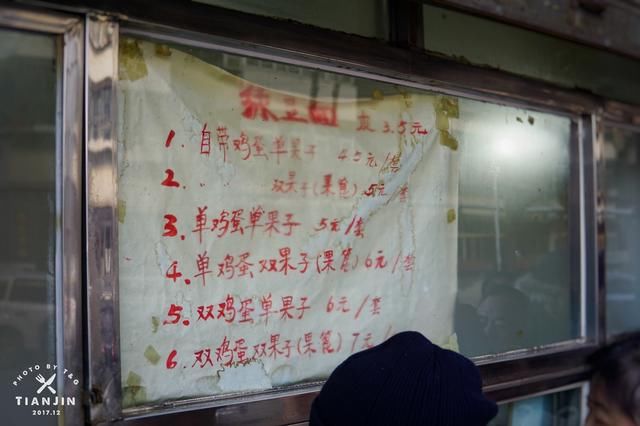 绿豆面 皮 3.5元
1. 自带鸡蛋单果子 4.5元/套
2. 〃 双果子(果篦) 5元/套
3. 单鸡蛋单果子 5元/套
4. 单鸡蛋双果子(果篦)6元/套
5. 双鸡蛋单果子 6元/套
6. 双鸡蛋双果子(果篦)7元/
PHOTO BY T&G
TIANJIN
2017.12